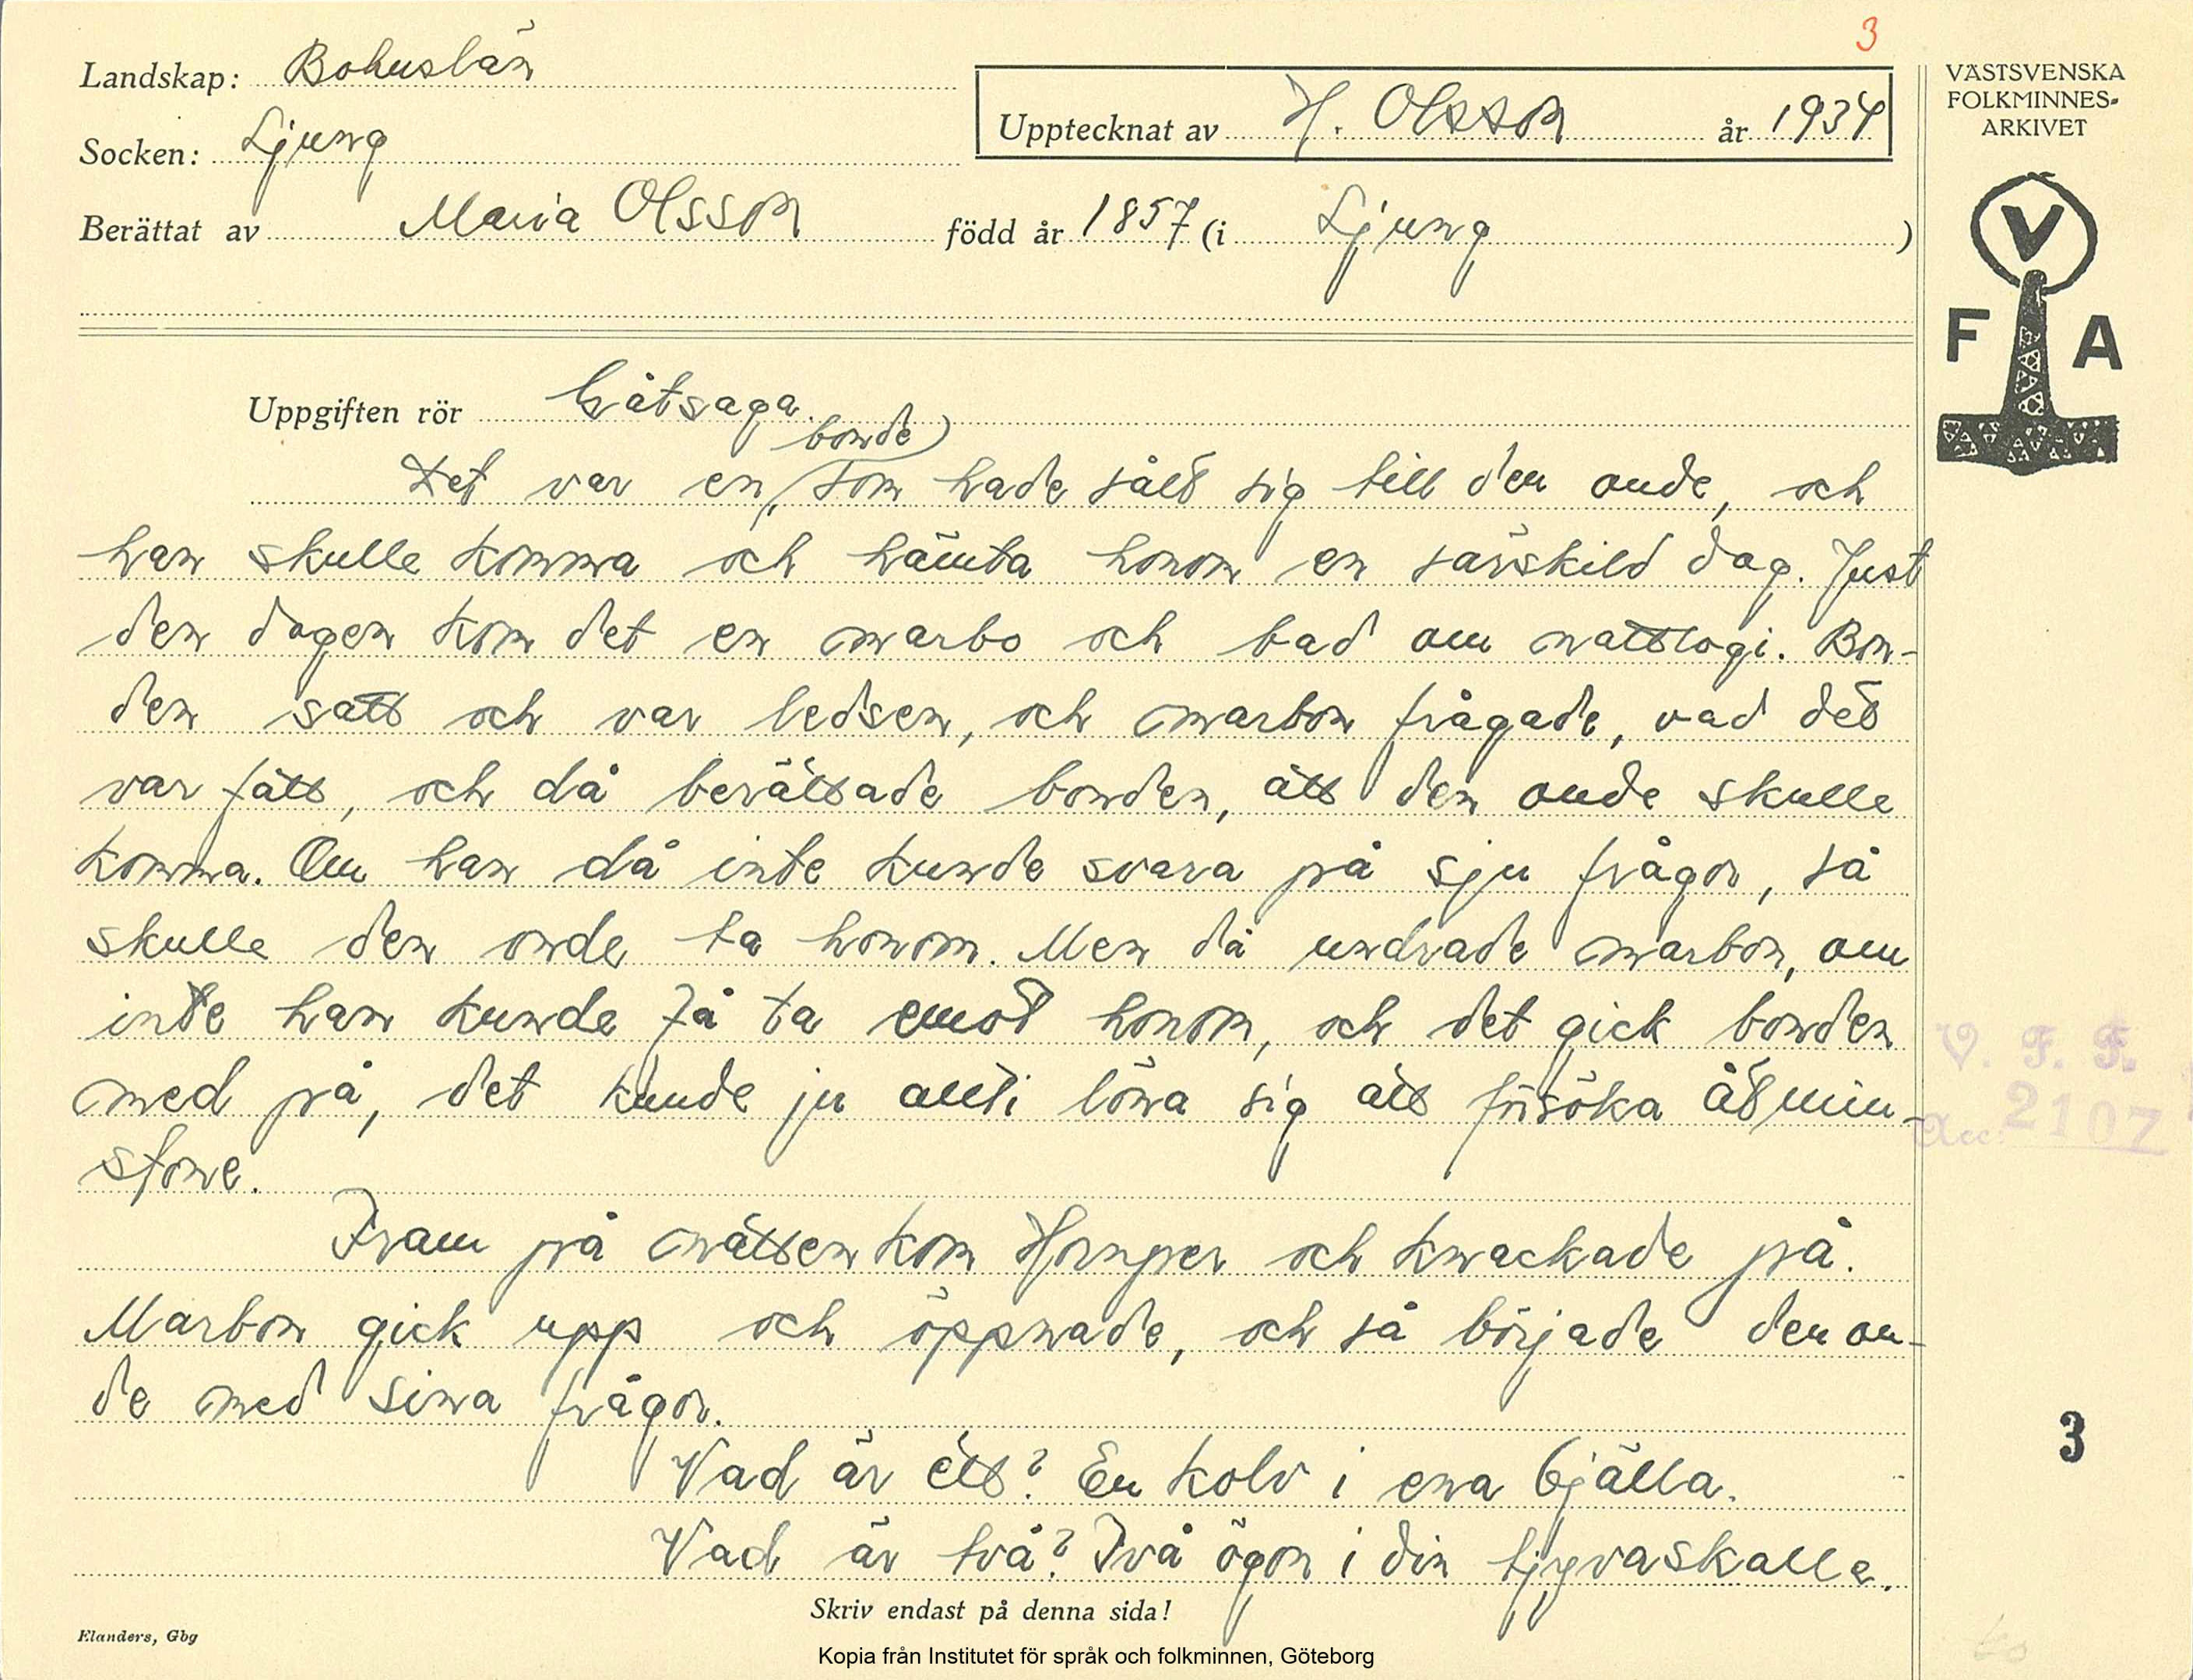 3
Landskap: Bohuslän
Socken: Ljung
Upptecknat av H. Olsson år 1934
Berättat av Maria Olsson född år 1857 (i Ljung )
VÄSTSVENSKA
FOLKMINNES-
ARKIVET
V
F A
Uppgiften rör Gåtsaga.
bonde
Det var en, som hade sålt sig till den onde, och
han skulle komma och hämta honom en särskild dag. Just
den dagen kom det en marbo och bad om nattlogi. Bon-
den satt och var ledsen, och marbon frågade, vad det
var fatt, och då berättade bonden, att den onde skulle
komma. Om han då inte kunde svara på sju frågor, så
skulle den onde ta honom. Men då undrade marbon, om
inte han kunde få ta emot honom, och det gick bonden
med på, det kunde ju allti löna sig att försöka åtmin-
stone.
Fram på natten kom Hornper och knackade på.
Marbon gick upp och öppnade, och så började den on-
de med sina frågor.
Vad är ett? En kolv i ena bjälla.
Vad är två? Två ögon i din tjyvaskalle.
V. F. F.
Acc. 2107
3
Skriv endast på denna sida!
Elanders, Gbg
Kopia från Institutet för språk och folkminnen, Göteborg